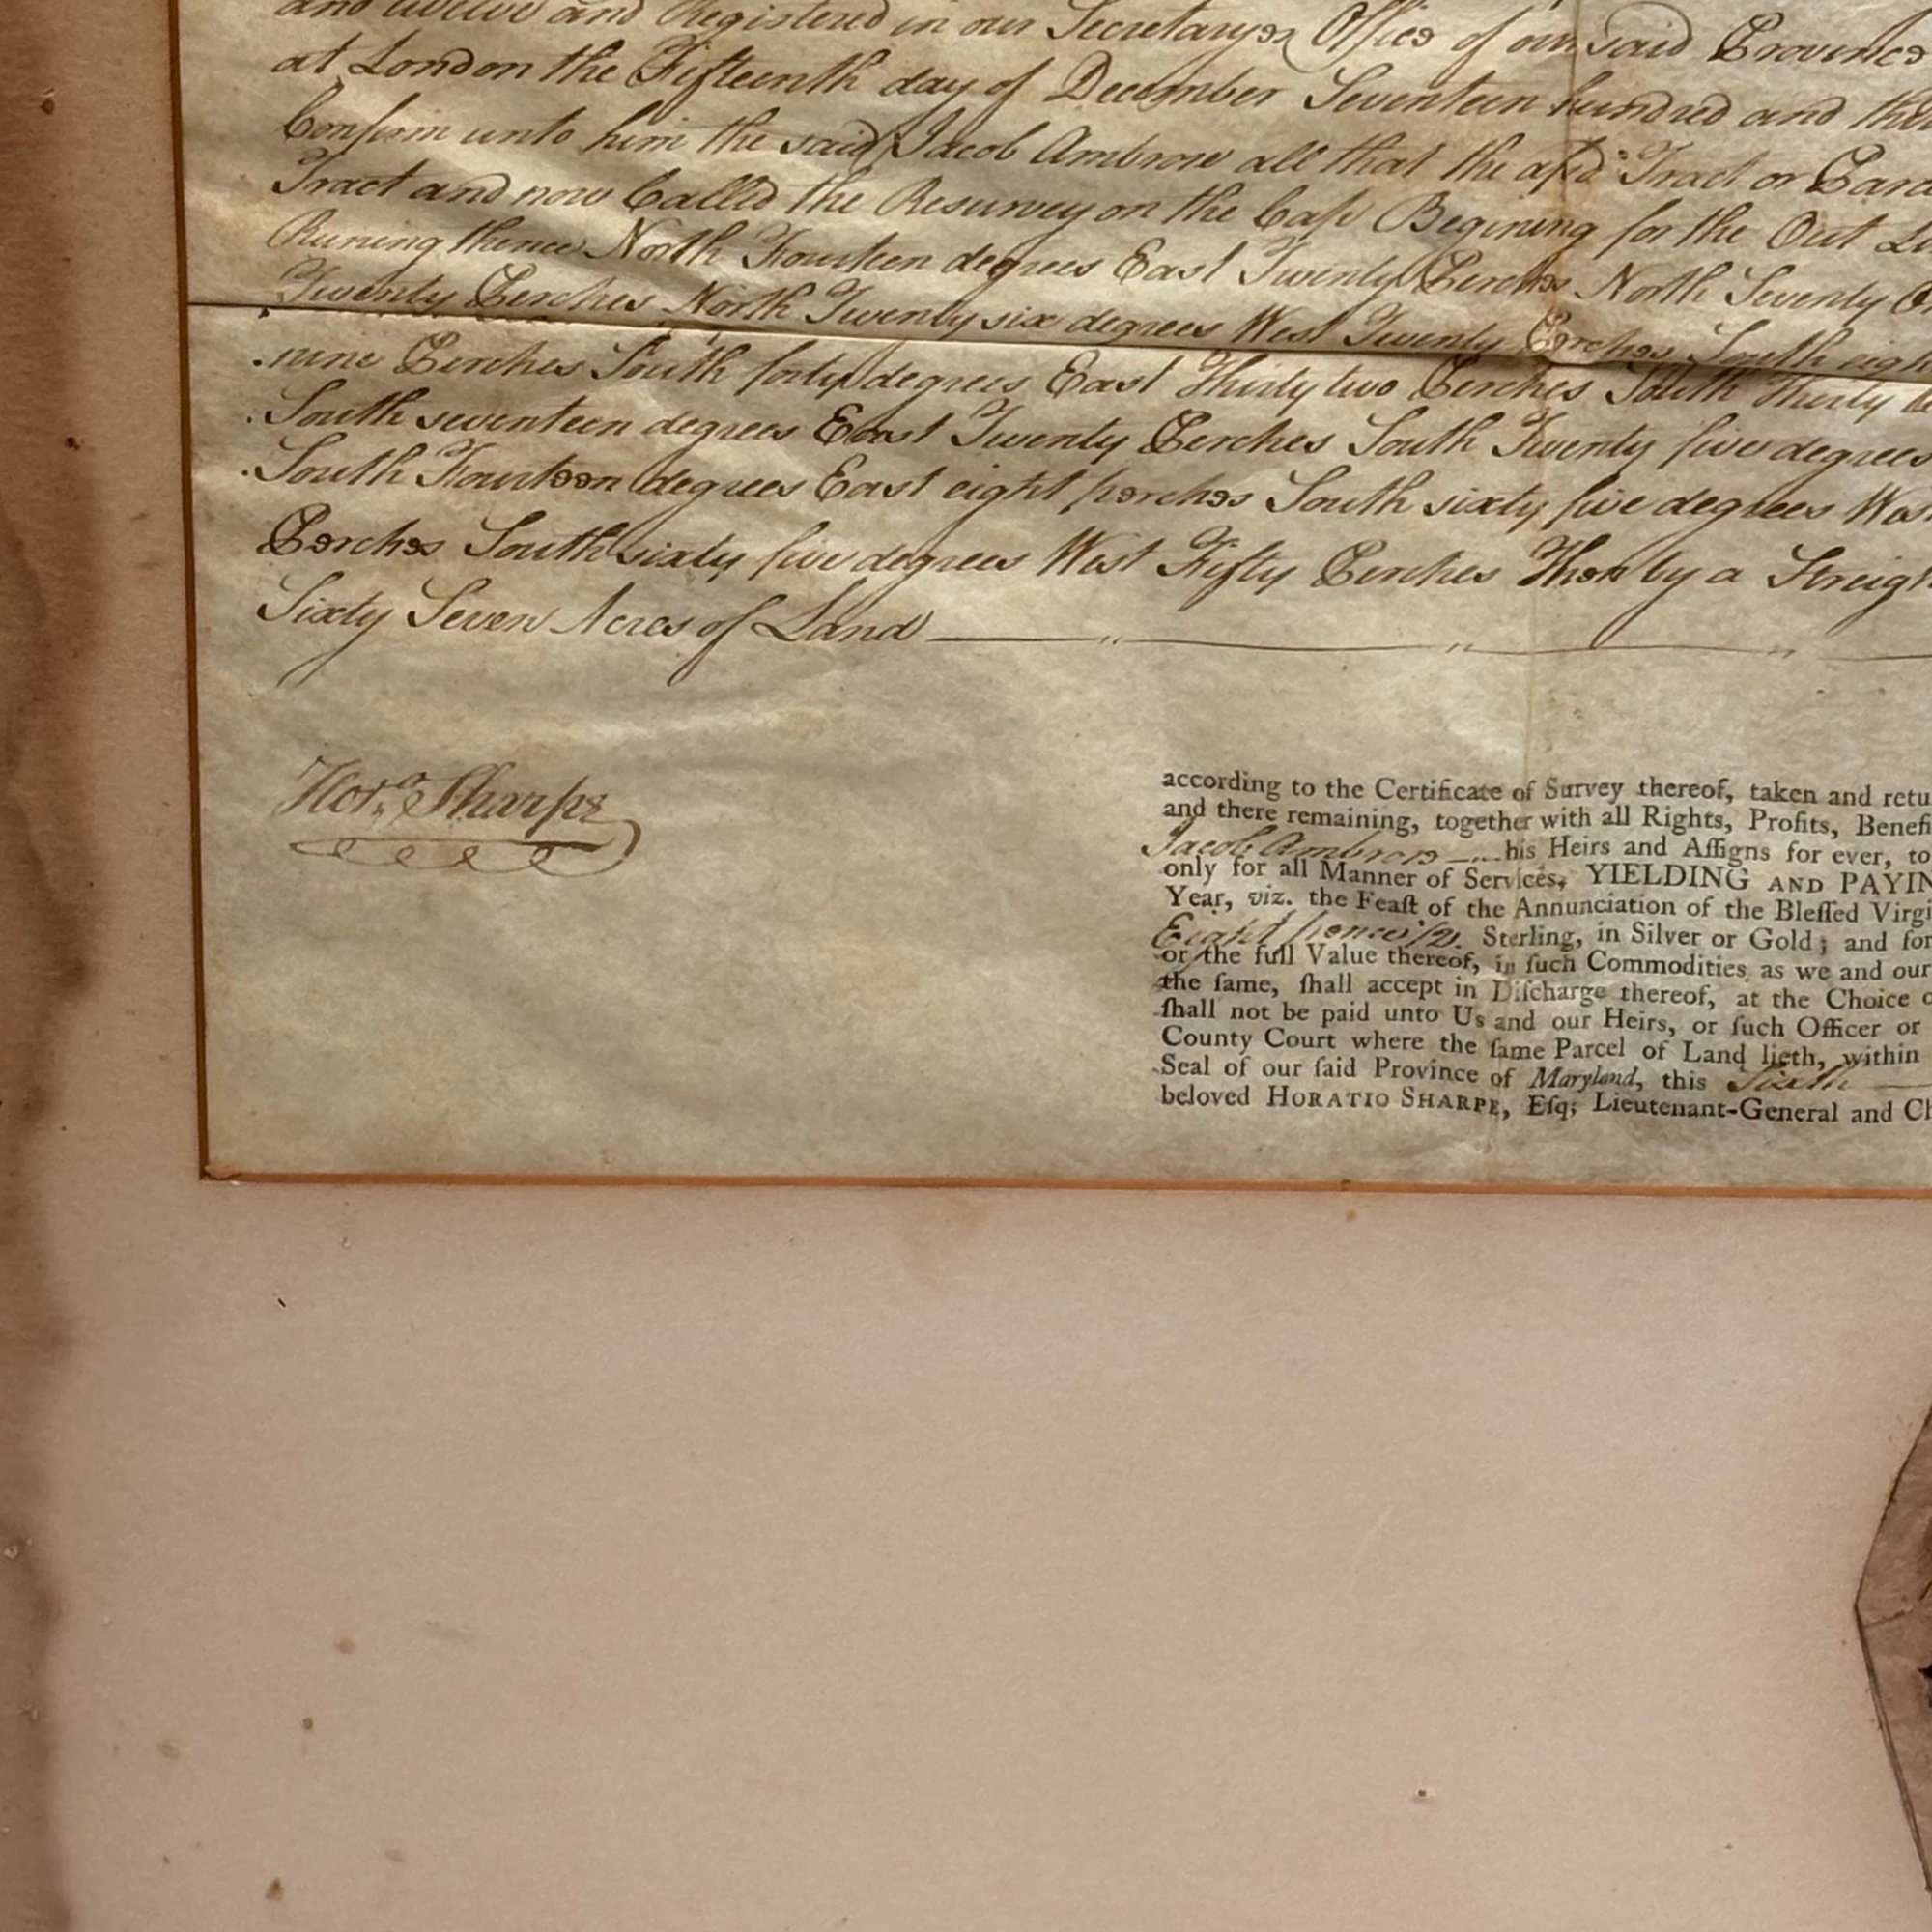 and twelve and Registered in our Secretarys Office of our said Province
at London the Fifteenth day of December Seventeen hundred and
Confirm unto him the said Jacob Ambrose all that the afsd Tract or
Tract and now Called the Resurvey on the Begining for the Out
Runing thence North Fourteen degrees East Twenty Perches North Seventy
Twenty Perches North Twenty six degrees West Twenty Perches South
nine Perches South forty degrees East Thirty two Perches South Thirty
South seventeen degrees East Twenty Perches South Twenty five degrees
South Fourteen degrees East eight perches South sixty five degrees
Perches South sixty five degrees West Fifty Perches Then by a
Sixty Seven Acres of Land
Horo. Sharpe
according to the Certificate of Survey thereof, taken and retu
and there remaining, together with all Rights, Profits, Benefi
Jacob Ambrose his Heirs and Aſſigns for ever, to
only for all Manner of Services, YIELDING AND PAYIN
Year, viz. the Feaſt of the Annunciation of the Bleſſed Virgi
Eight pence 1/2. Sterling, in Silver or Gold; and for
or the full Value thereof, in ſuch Commodities as we and our
the ſame, ſhall accept in Diſcharge thereof, at the Choice o
ſhall not be paid unto Us and our Heirs, or ſuch Officer or
County Court where the ſame Parcel of Land lieth, within
Seal of our ſaid Province of Maryland, this Sixth
beloved HORATIO SHARPE, Eſq; Lieutenant-General and Ch